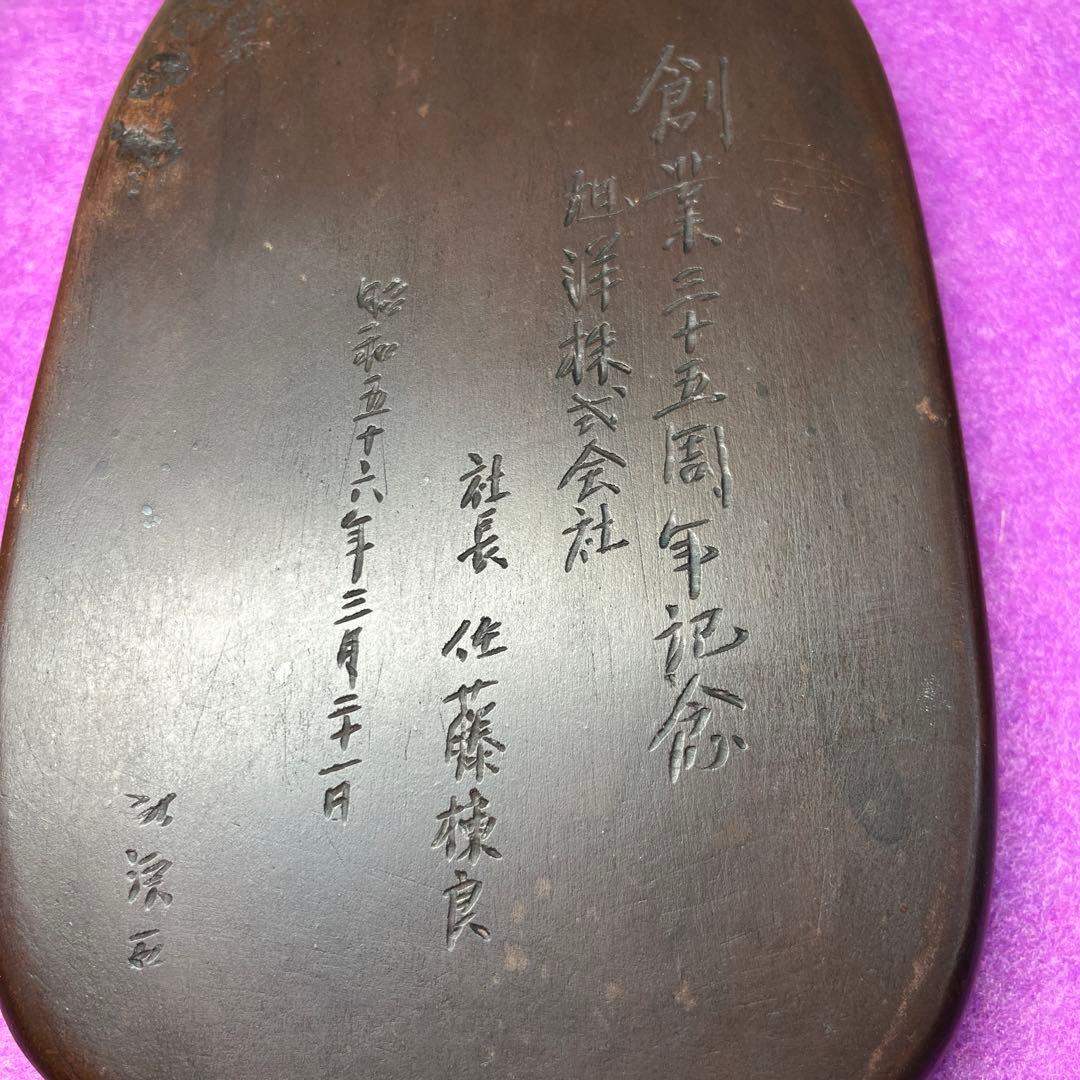 創業三十五周年記念
旭洋株式会社
社長 佐藤棟良
昭和五十六年三月二十一日